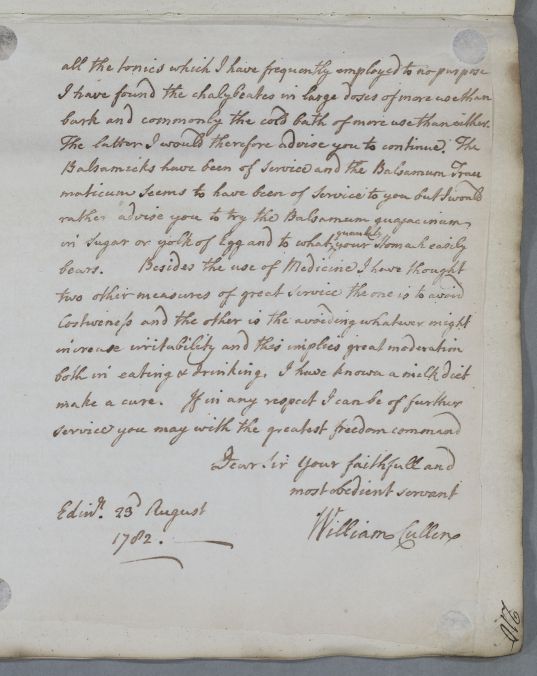 all the tonics which I have frequently employed to no purpose
I have found the chalybeates in large doses of more use than
bark and commonly the cold bath of more use than either.
The latter I would therefore advise you to continue. The
Balsamicks have been of service and the Balsamum Trau
maticum seems to have been of service to you but I would
rather advise you to try the Balsamum guajacinum
in sugar or yolk of Egg and to what quantity your stomach easily
bears. Besides the use of Medicine I have thought
two other measures of great service the one is to avoid
Costiveness and the other is the avoiding whatever might
increase irritability and this implies great moderation
both in eating & drinking. I have known a milk diet
make a cure. If in any respect I can be of further
service you may with the greatest freedom command
Dear Sir Your faithfull and
most obedient servant
William Cullen
Edinr. 23d August
1782.